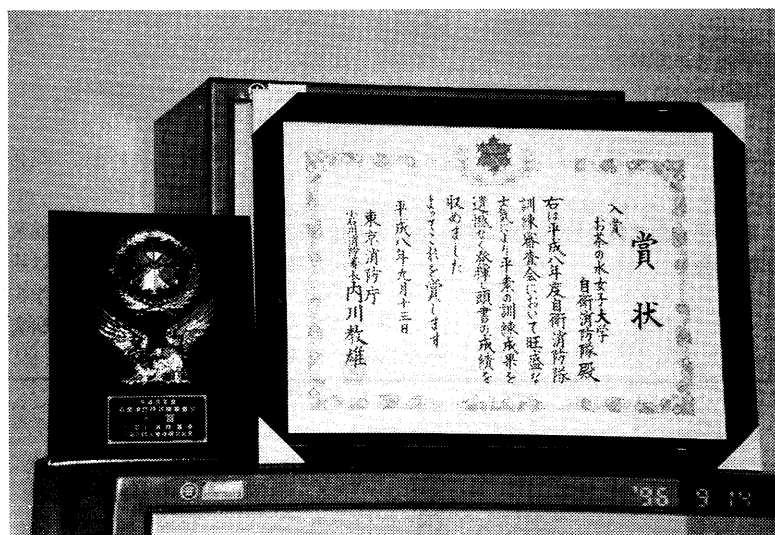 賞状
入賞
お茶の水女子大学
自衛消防隊殿
右は平成八年度自衛消防隊
訓練審査会において旺盛な
士気により平素の訓練成果を
遺憾なく発揮し頭書の成績を
収めました
よってこれを賞します
平成八年九月十三日
東京消防庁
小石川消防署長 内川教雄
'96 9 14